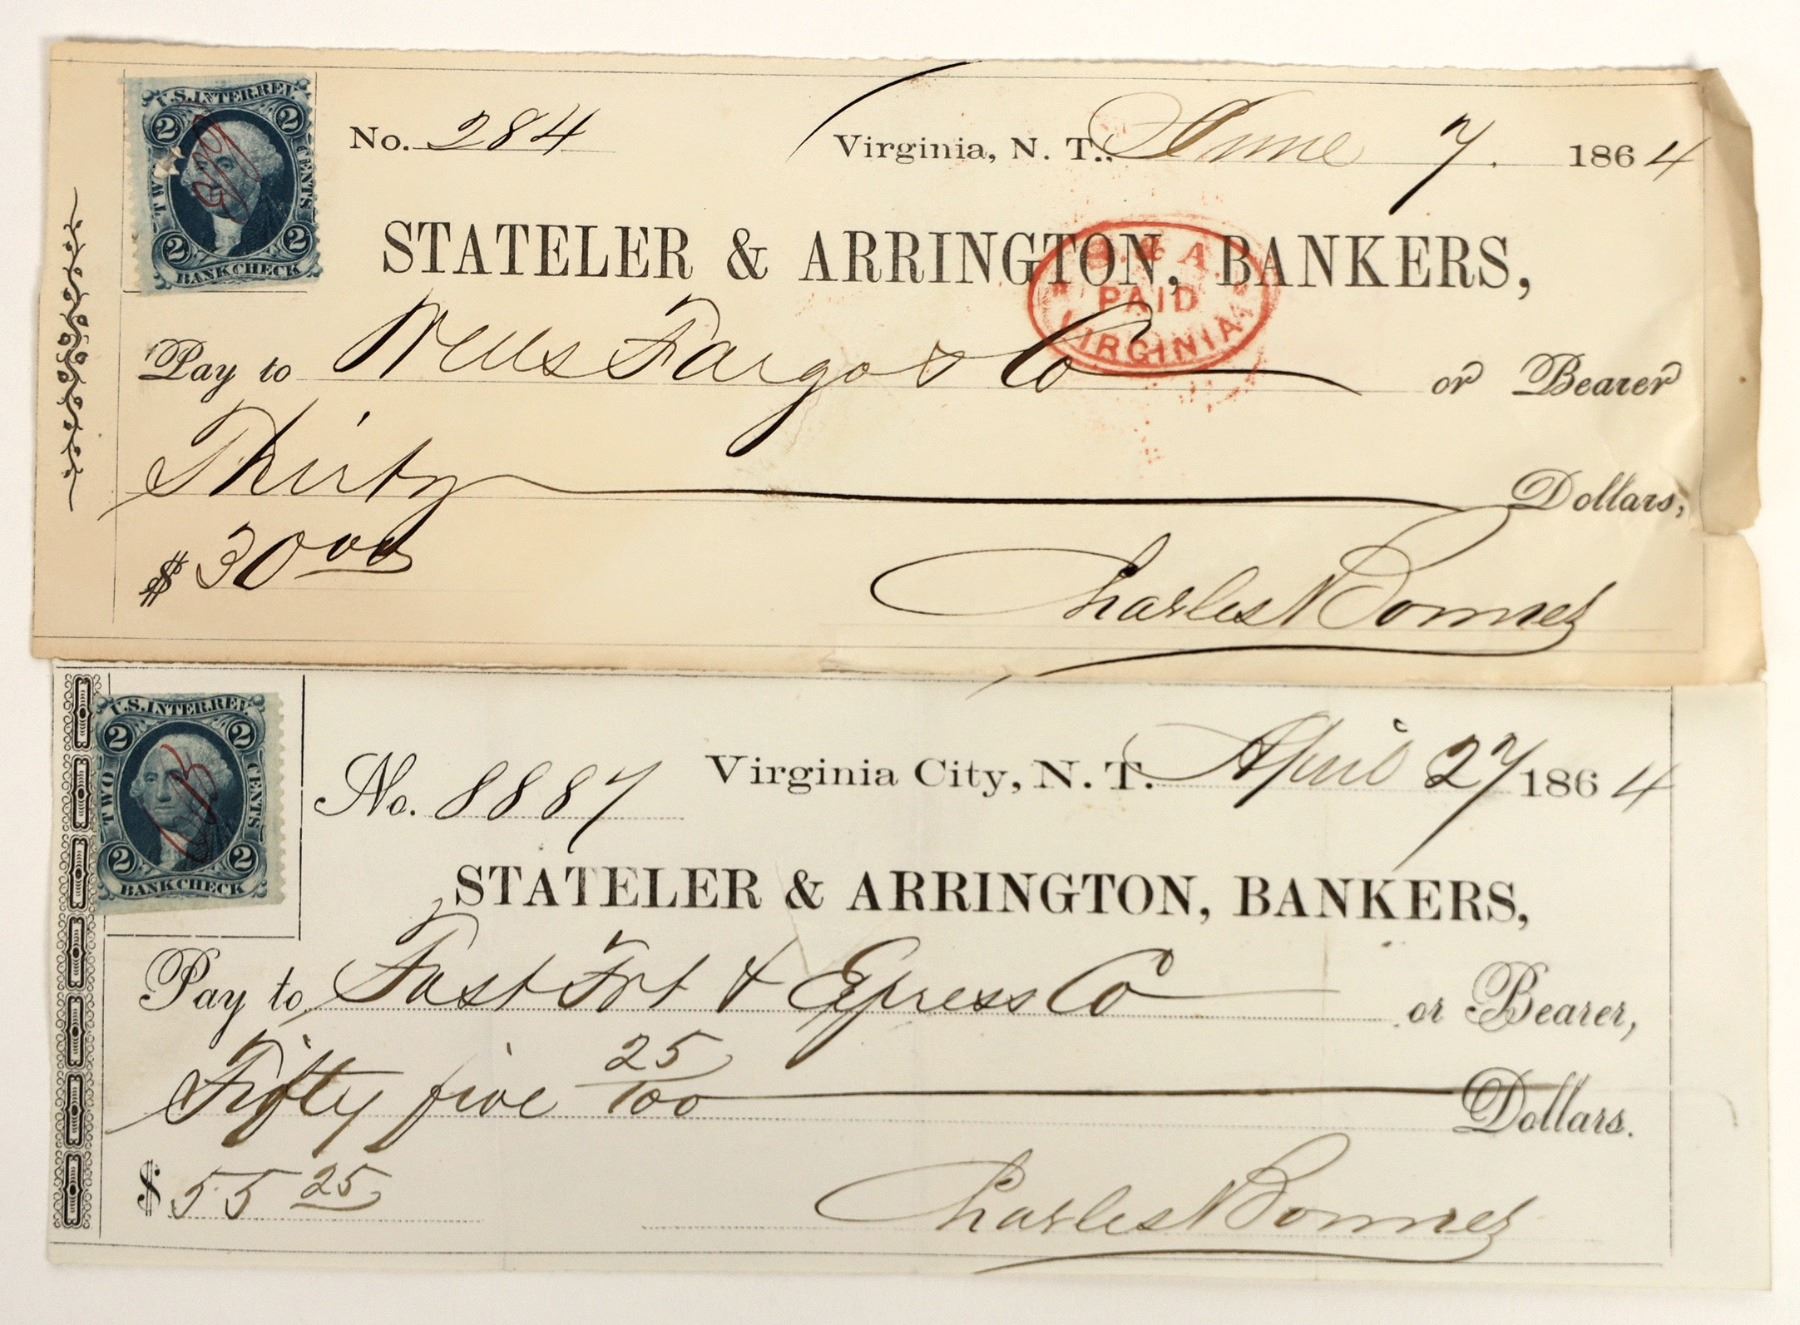 U.S. INTER. REV.
2 2
TWO CENTS
2 2
BANK CHECK
No. 284 Virginia, N. T., June 7. 1864
STATELER & ARRINGTON, BANKERS,
S. & A.
PAID
VIRGINIA
Pay to Wells Fargo & Co or Bearer
Thirty Dollars,
$ 30 00
Charles Bonner
U.S. INTER. REV.
2 2
TWO CENTS
2 2
BANK CHECK
No. 8887 Virginia City, N. T. April 27 1864
STATELER & ARRINGTON, BANKERS,
Pay to Fast Frt & Express Co or Bearer,
Fifty five 25/100 Dollars.
$ 55 25
Charles Bonner